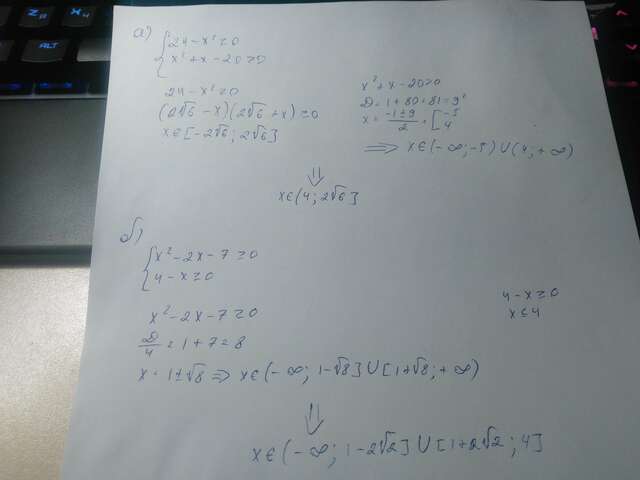 Z Я
X Ч
ALT
а)
{24 - x² ≥ 0
x² + x - 20 > 0
24 - x² ≥ 0
(2√6 - x)(2√6 + x) ≥ 0
x ∈ [-2√6; 2√6]
x² + x - 20 > 0
D = 1 + 80 = 81 = 9²
x = (-1 ± 9)/2 = [-5
4
⇒ x ∈ (-∞; -5) ∪ (4; +∞)
⇓
x ∈ (4; 2√6]
б)
{x² - 2x - 7 ≥ 0
4 - x ≥ 0
x² - 2x - 7 ≥ 0
D/4 = 1 + 7 = 8
x = 1 ± √8 ⇒ x ∈ (-∞; 1 - √8] ∪ [1 + √8; +∞)
4 - x ≥ 0
x ≤ 4
⇓
x ∈ (-∞; 1 - 2√2] ∪ [1 + 2√2; 4]